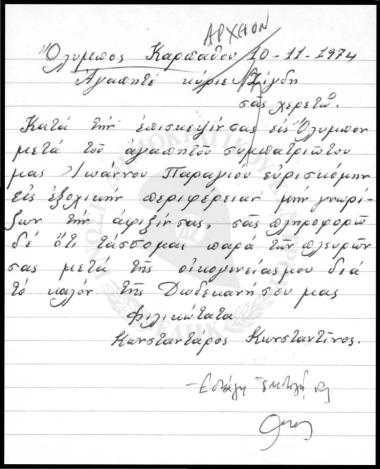 ΑΡΧΕΙΟΝ
Ὄλυμπος Καρπάθου 10-11-1974
Ἀγαπητέ κύριε Ζίγδη
σᾶς χερετῶ.
Κατά τήν ἐπίσκεψίν σας εἰς Ὄλυμπον
μετά τοῦ ἀγαπητοῦ συμπατριώτου
μας Ἰωάννου Παραγιου εὑρισκόμην
εἰς ἐξοχικήν περιφέρειαν μην γνωρί-
ζων τήν ἄφιξίν σας, σᾶς πληροφορῶ
δέ ὅτι τάσσομαι παρά τῶν πλευρῶν
σας μετά τῆς οἰκογενείας μου διά
τό καλόν τῆς Δωδεκανήσου μας
Φιλικώτατα
Κωνσταντάρος Κωνσταντίνος.